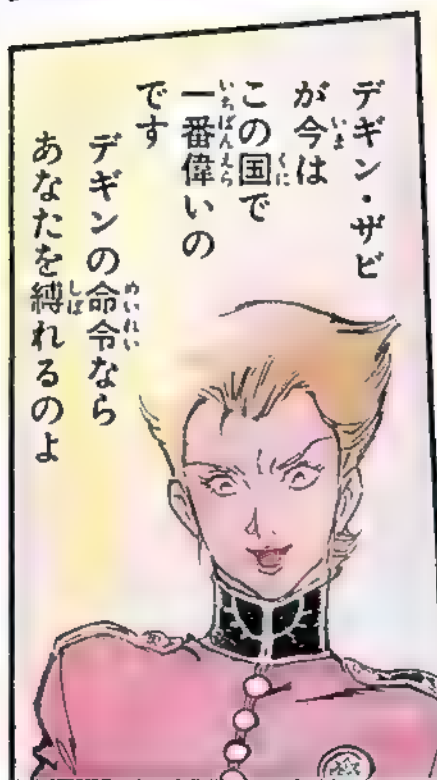 デギン・ザビ
が今は
この国で
一番偉いの
です
デギンの命令なら
あなたを縛れるのよ